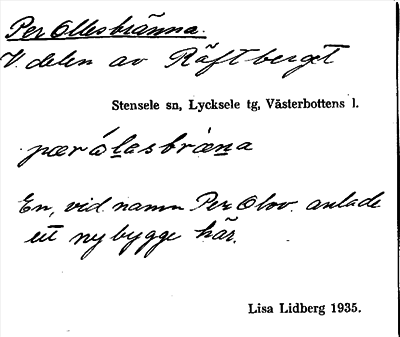 Per Ollesbränna.
V. delen av Räftberget
Stensele sn, Lycksele tg, Västerbottens l.
pær ólasbræna
En, vid namn Per Olov. anlade
ett nybygge här.
Lisa Lidberg 1935.